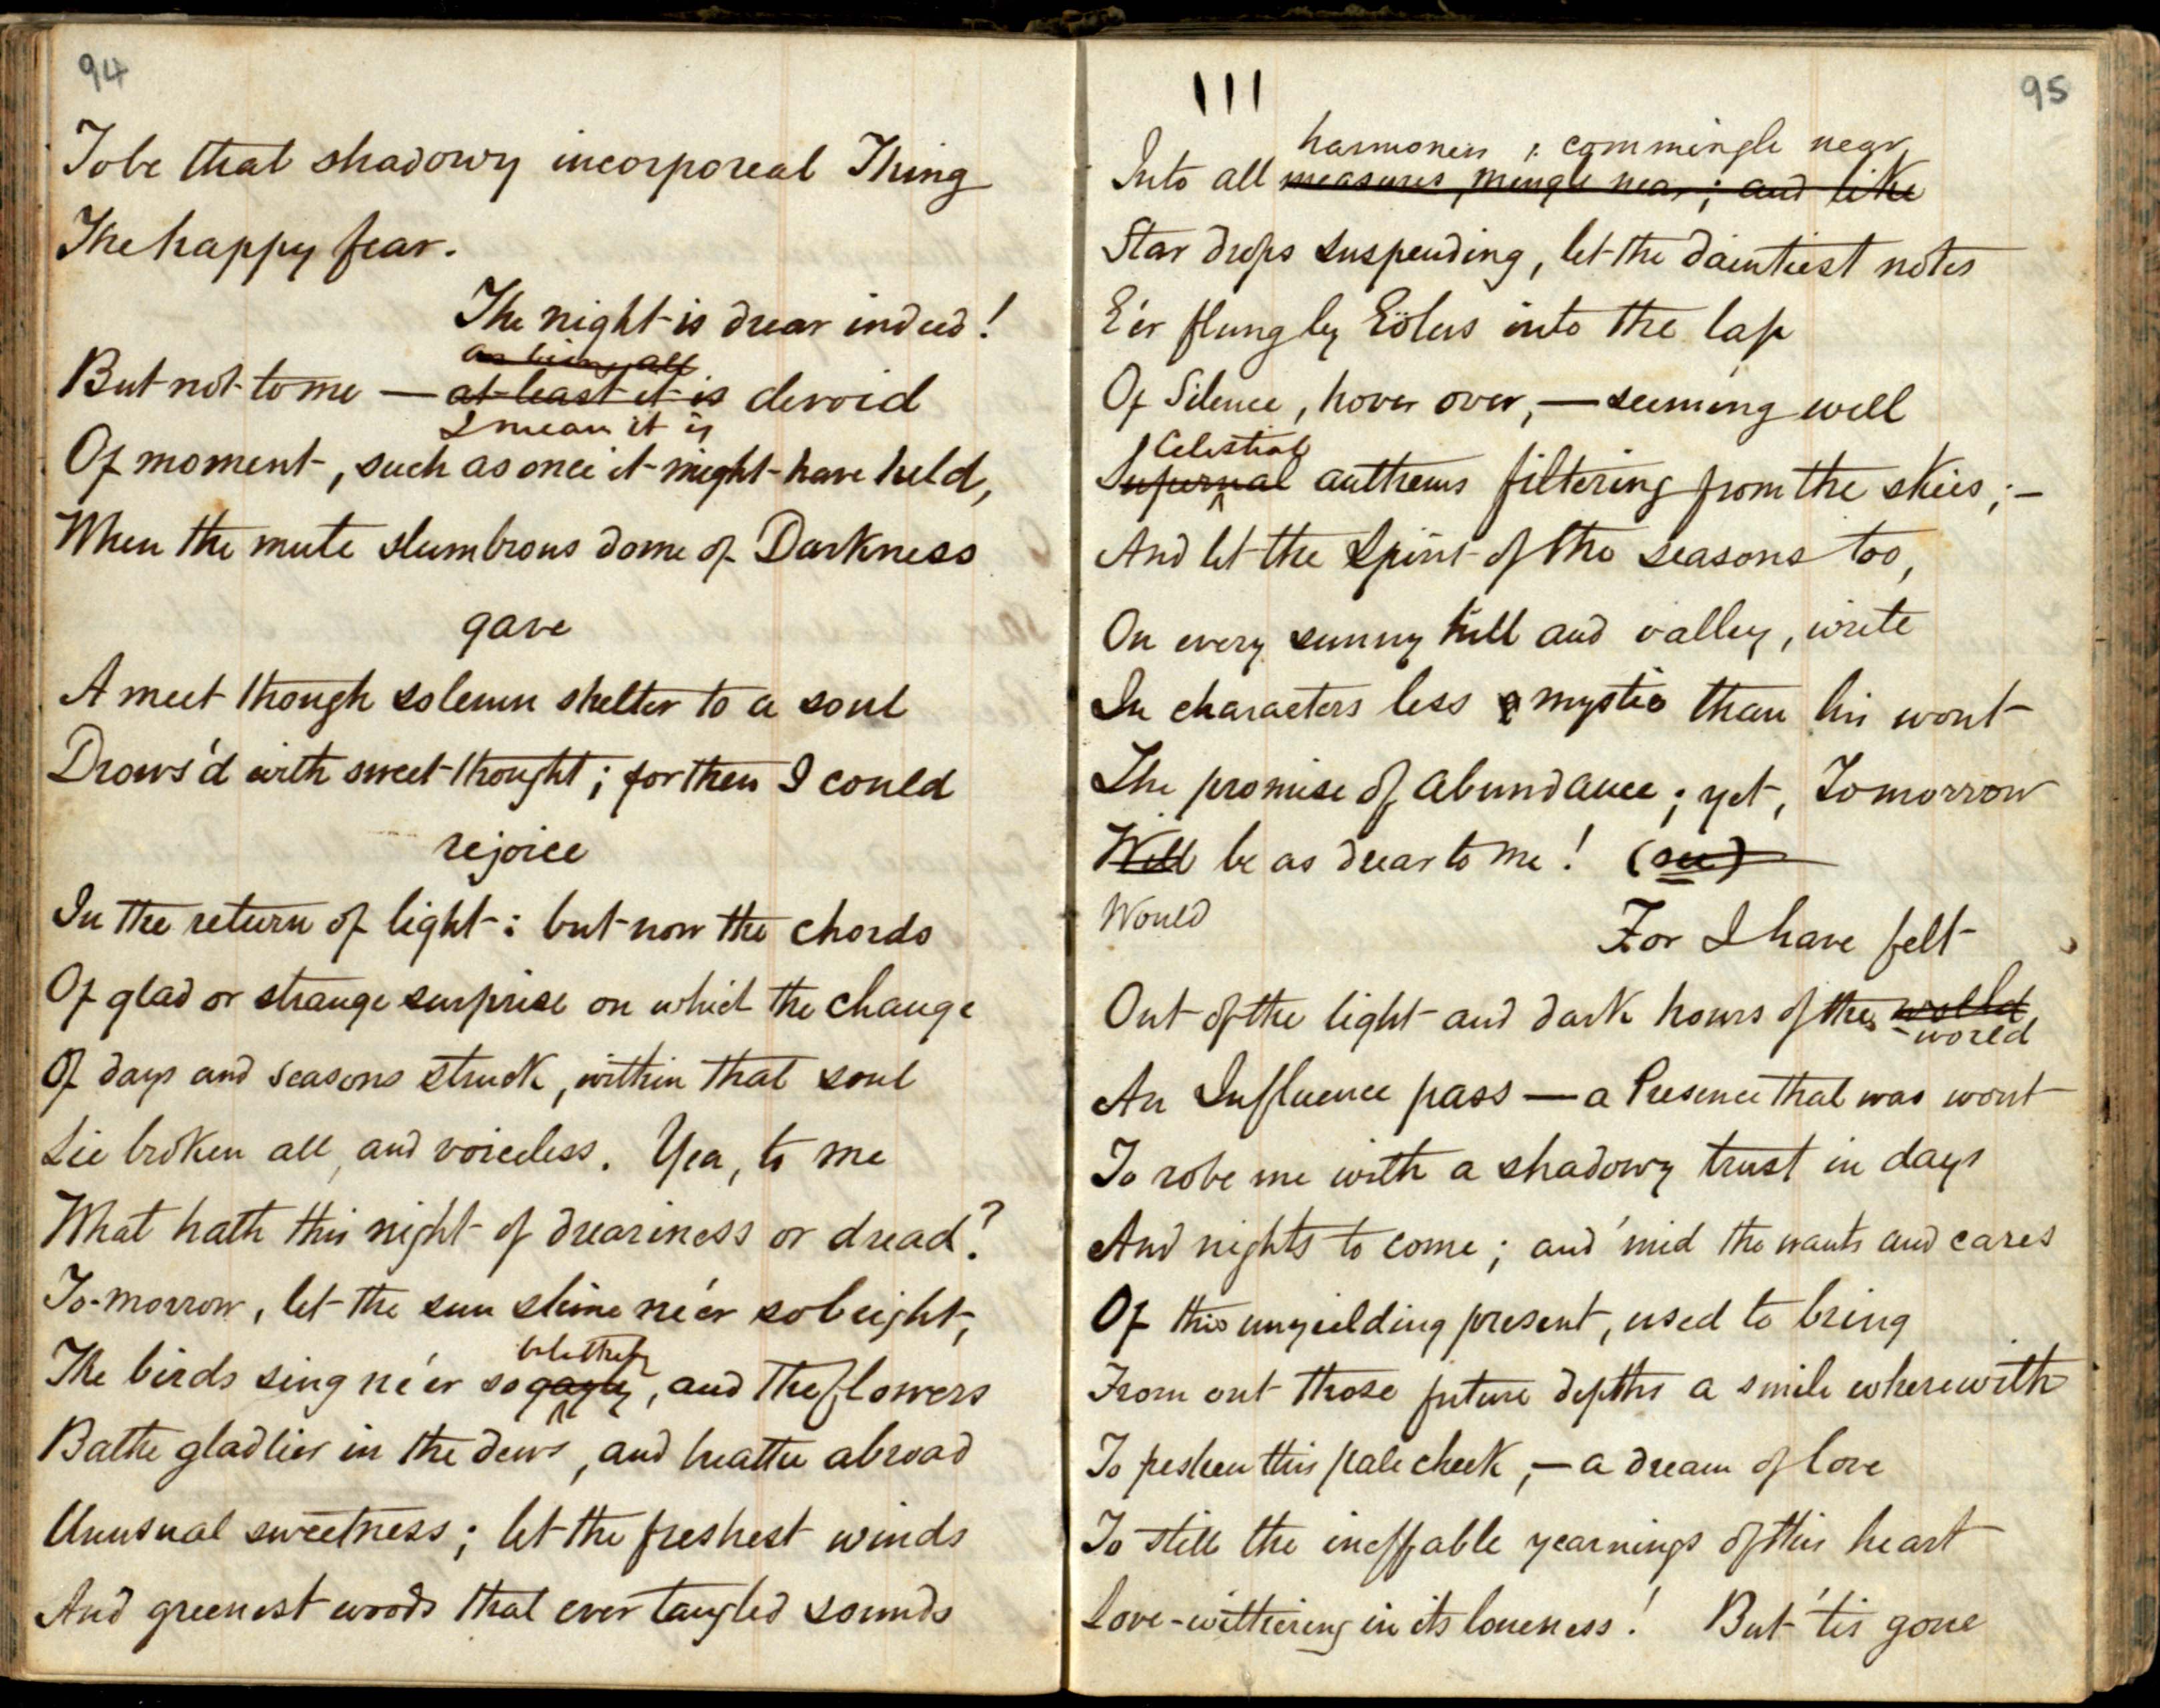 94
To be that shadowy incorporeal Thing
The happy fear.
The night is drear indeed!
as being all
But not to me — at least it is devoid
I mean it is
Of moment, such as once it might have held,
When the mute slumbrous dome of Darkness
gave
A meet though solemn shelter to a soul
Drows'd with sweet thought; for then I could
rejoice
In the return of light: but now the chords
Of glad or strange surprise on which the change
Of days and seasons struck, within that soul
Lie broken all, and voiceless. Yea, to me
What hath this night of dreariness or dread?
To-morrow, let the sun shine ne'er so bright,
blithely
The birds sing ne'er so gayly, and the flowers
Bathe gladlier in the dews, and breathe abroad
Unusual sweetness; let the freshest winds
And greenest woods that ever tangled sounds
111
95
harmonies; commingle near,
Into all measures, mingle near; and like
Star drops suspending, let the daintiest notes
E'er flung by Eölus into the lap
Of Silence, hover over, — seeming well
Celestial
Supernal anthems filtering from the skies; —
And let the Spirit of the seasons too,
On every sunny hill and valley, write
In characters less mystic than his wont
The promise of abundance; yet, Tomorrow
Will be as drear to me! (see)
Would
For I have felt
Out of the light and dark hours of the world
world
An Influence pass — a Presence that was wont
To robe me with a shadowy trust in days
And nights to come; and 'mid the wants and cares
Of this unyielding present, used to bring
From out those future depths a smile wherewith
To freshen this pale cheek, — a dream of love
To still the ineffable yearnings of this heart
Love-withering in its loneness! But 'tis gone